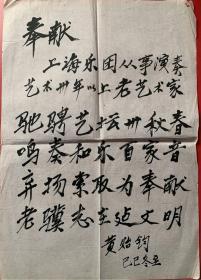 奉献
上海乐团从事演奏
艺术卅年以上老艺术家
驰骋艺坛卅秋春
鸣奏和乐百家音
弃扬索取为奉献
老骥志在达文明
黄贻钧
己巳冬至